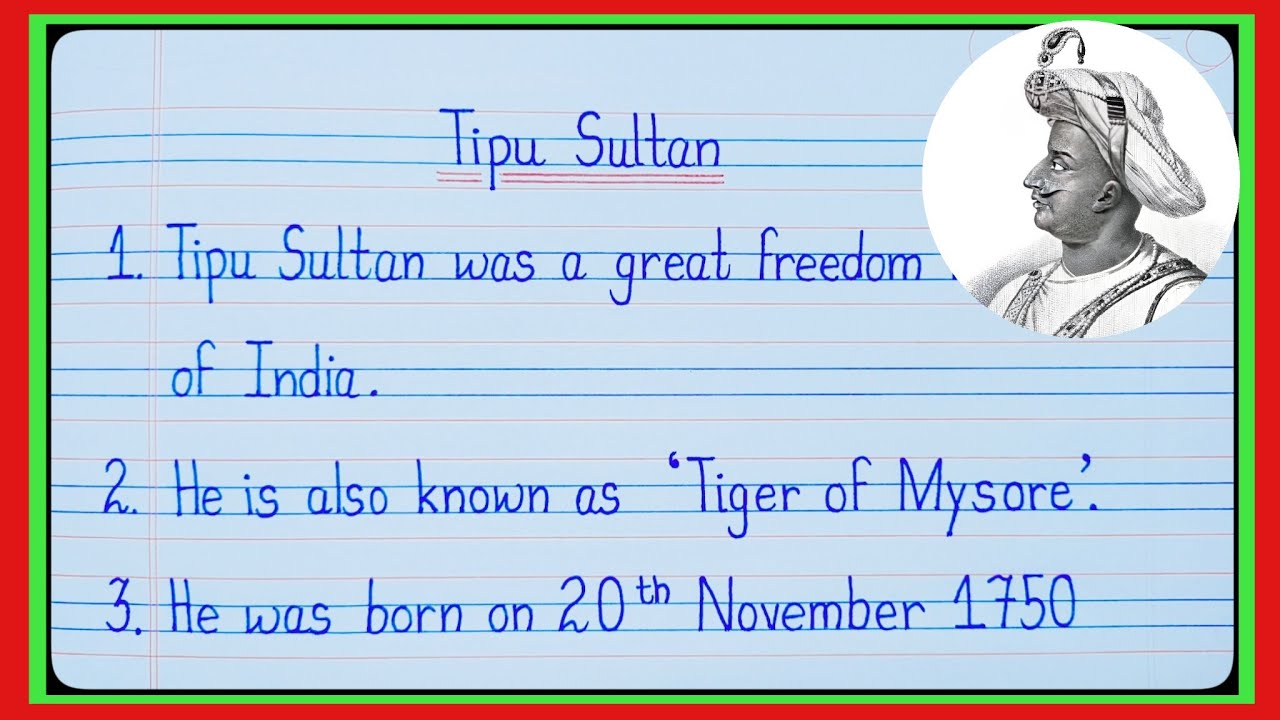 Tipu Sultan
1. Tipu Sultan was a great freedom
of India.
2. He is also known as 'Tiger of Mysore'.
3. He was born on 20th November 1750